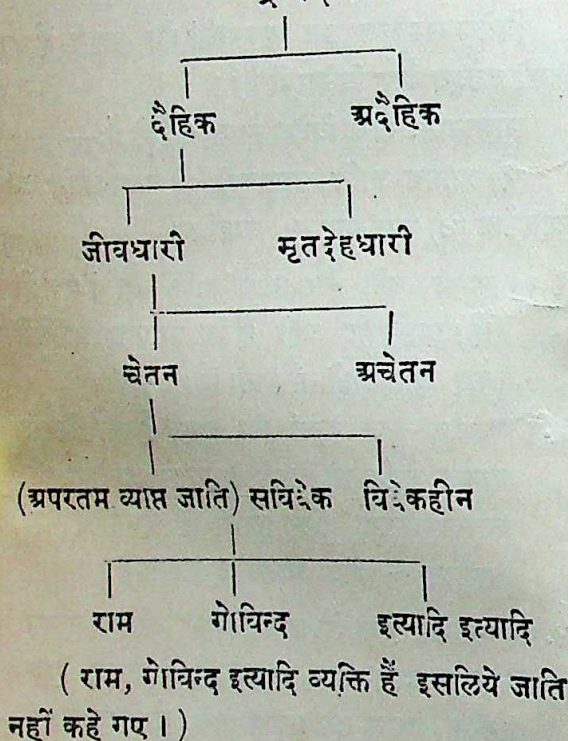 दैहिक अदैहिक
जीवधारी मृतदेहधारी
चेतन अचेतन
(अपरतम व्याप्त जाति) सविवेक विवेकहीन
राम गोविन्द इत्यादि इत्यादि
( राम, गोविन्द इत्यादि व्यक्ति हैं इसलिये जाति
नहीं कहे गए । )